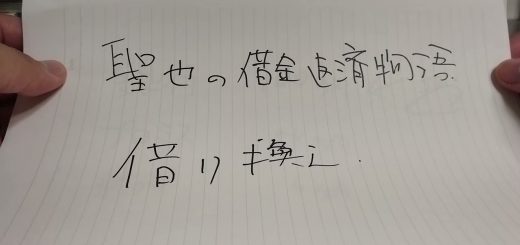 聖也の借金返済物語.
借り換え.